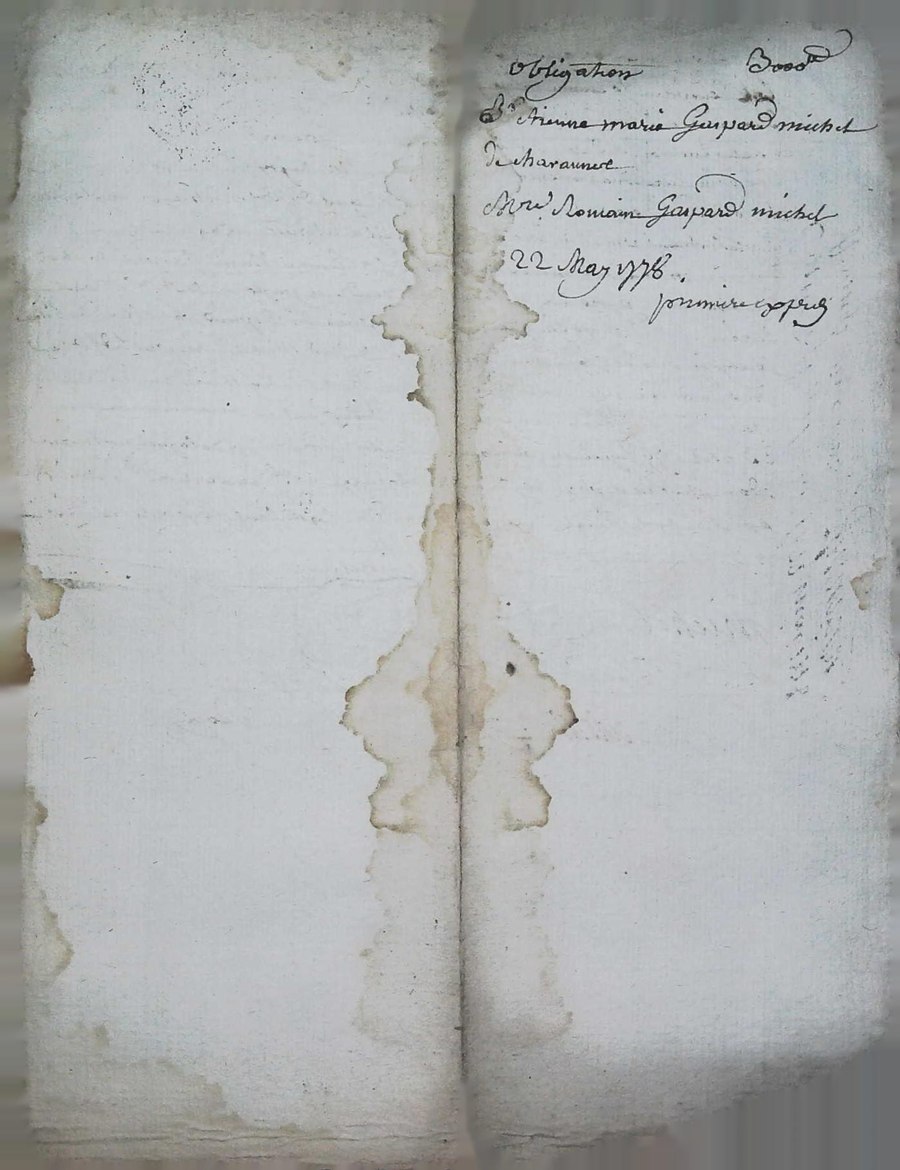 Obligation 3000ᵗᵗ
Sʳ Etienne marie Gaspard michel
De charaunce
Mʳᵉ Romain Gaspard michel
22 May 1778
premiere expedᵒⁿ